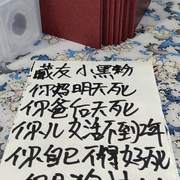 藏友小黑粉
你妈明天死
你爸后天死
你儿女活不到2年
你自己不得好死